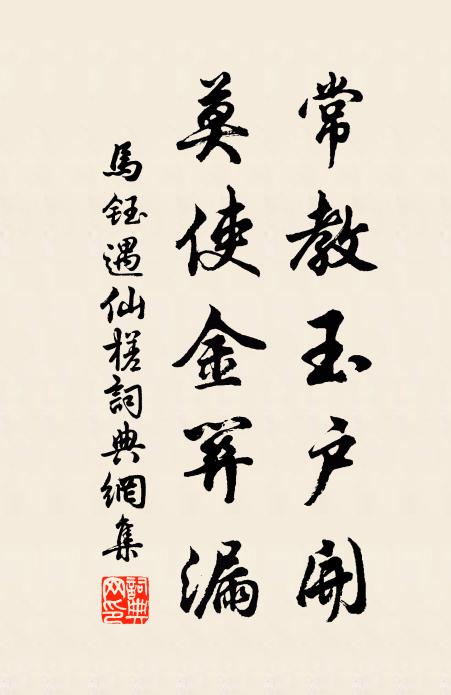 常教玉户開
莫使金笄漏
馬鈺遇仙槎詞典網集
詞典网印